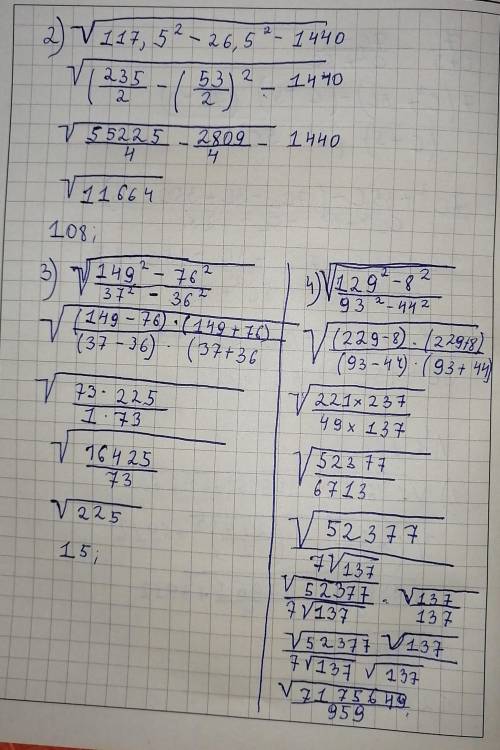 2) √(117,5² - 26,5² - 1440)
√((235/2 - (53/2)² - 1440)
√(55225/4 - 2809/4 - 1440)
√11664
108;
3) √((149² - 76²)/(37² - 36²))
√((149-76)·(149+76)/(37-36)·(37+36)
√(73·225/1·73)
√(16425/73)
√225
15;
4) √((129² - 8²)/(93² - 44²))
√((229-8)·(229+8)/(93-44)·(93+44))
√(221×237/49×137)
√(52377/6713)
√52377/7√137
√52377/7√137 · √137/137
√52377 √137/7√137 √137
√7175649/959